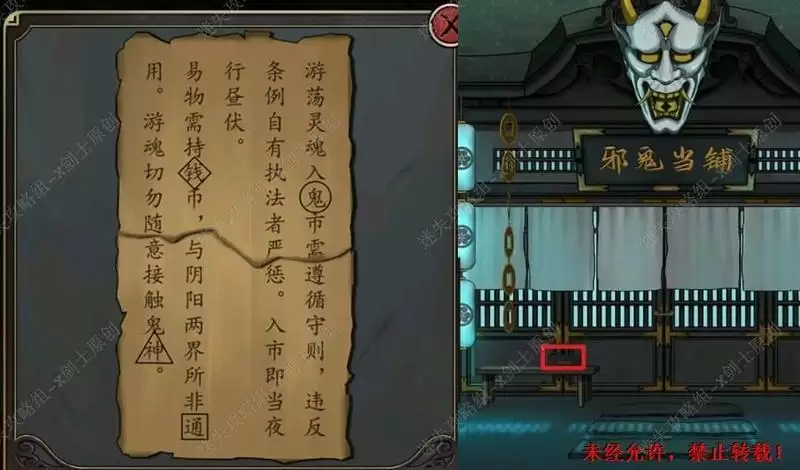 游荡灵魂入鬼市需遵循守则，违反
条例自有执法者严惩。入市即当夜
行昼伏。
易物需持钱币，与阴阳两界所非通
用。游魂切勿随意接触鬼神。
邪鬼当铺
未经允许，禁止转载！
迷失攻略组--x剑士原创